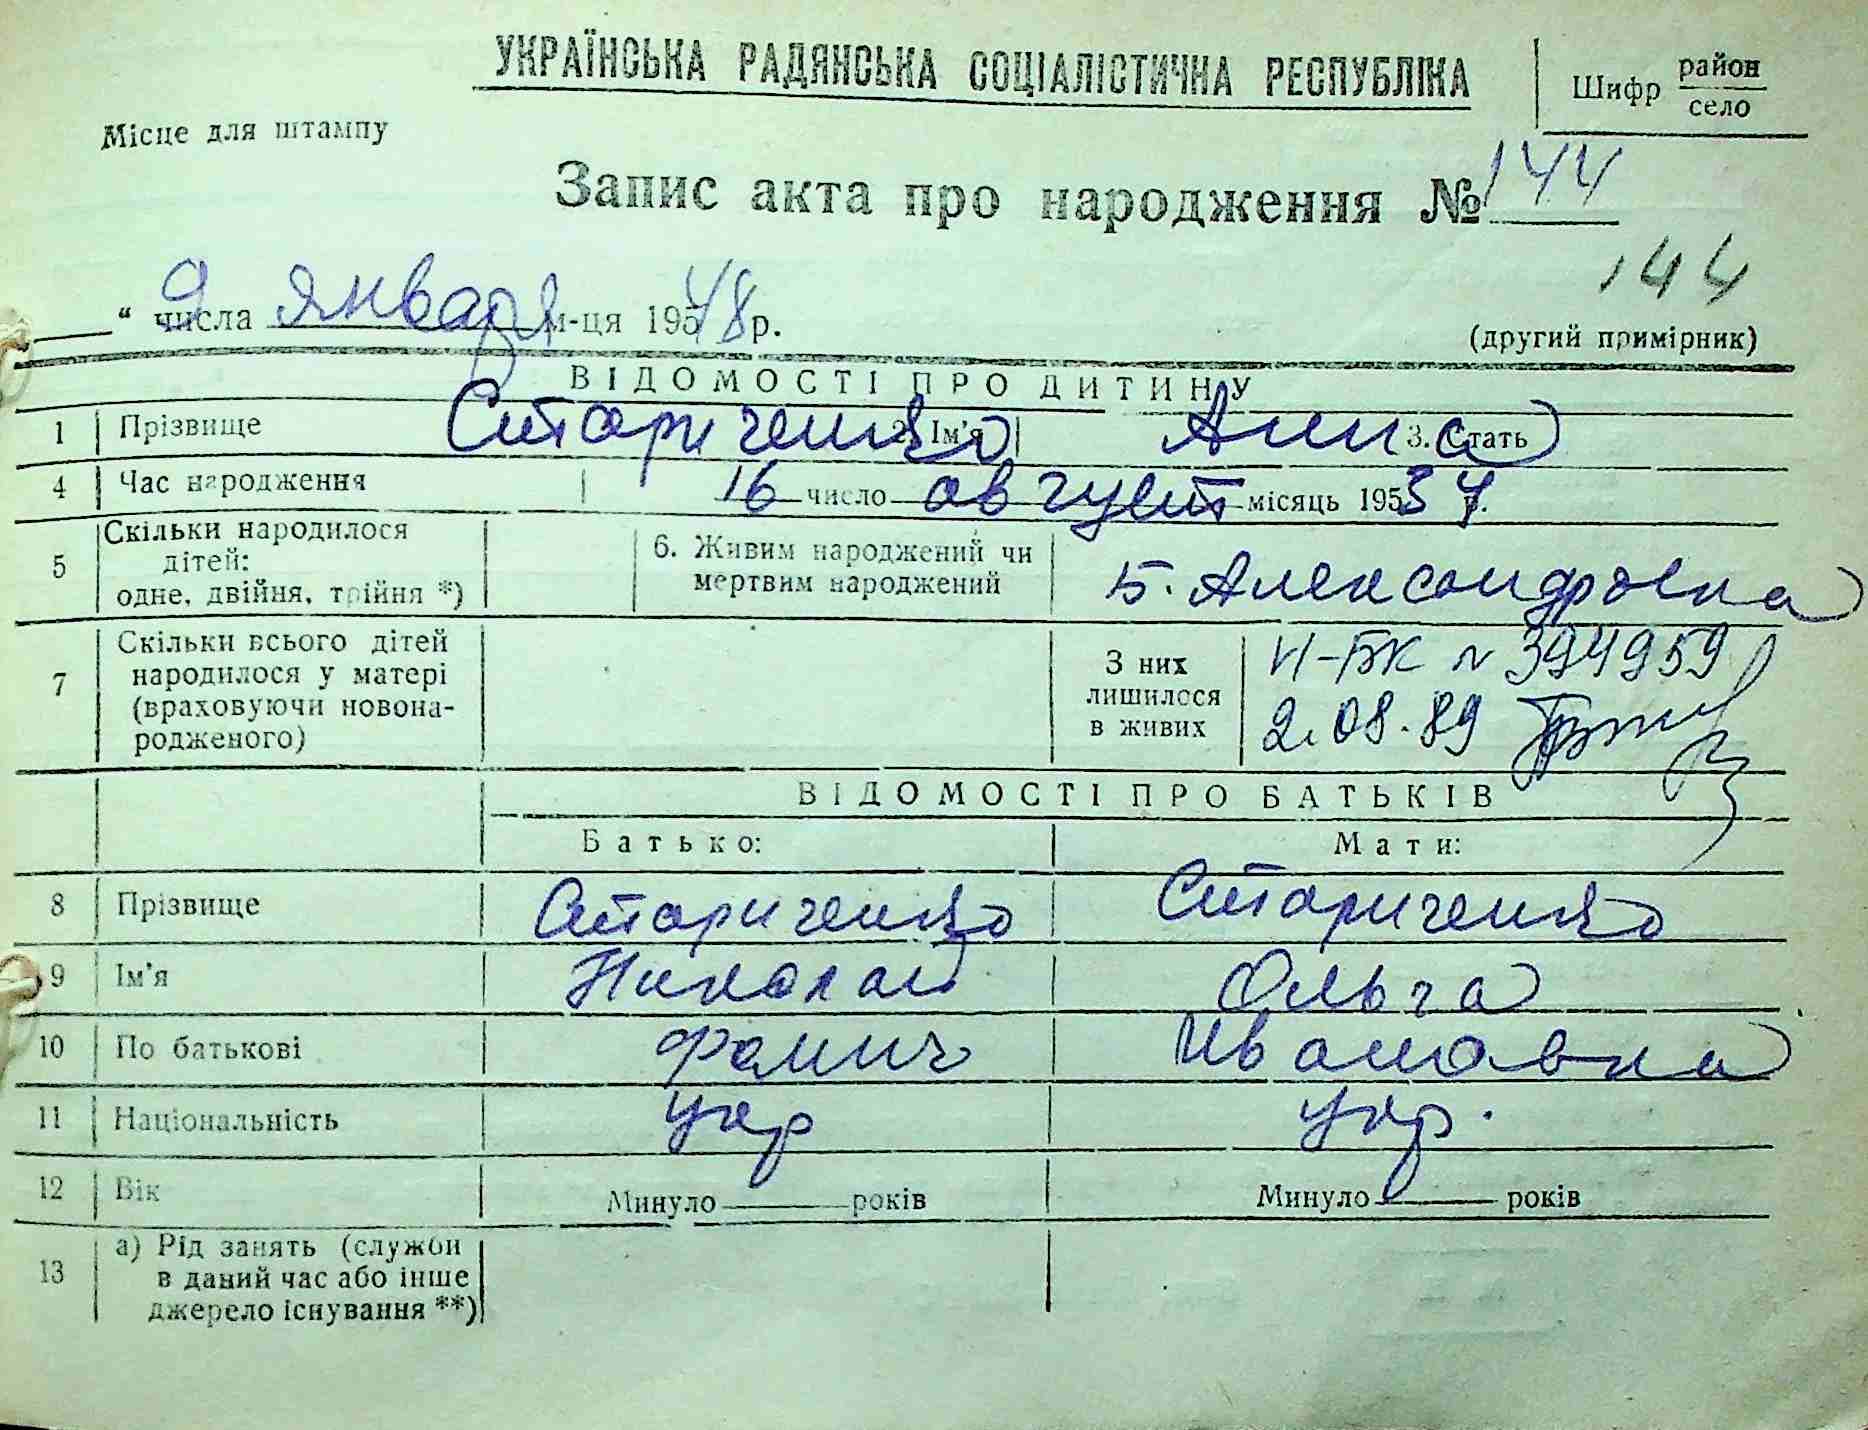 УКРАЇНСЬКА РАДЯНСЬКА СОЦІАЛІСТИЧНА РЕСПУБЛІКА
Шифр район
село
Місце для штампу
Запис акта про народження № 144
144
" 9 числа января м-ця 195 48 р.
(другий примірник)
ВІДОМОСТІ ПРО ДИТИНУ
1 Прізвище Стариченко 2. Ім'я Анна 3. Стать
4 Час народження 16 число август місяць 195 37 р.
5 Скільки народилося дітей: одне, двійня, трійня *) 6. Живим народжений чи мертвим народжений Б. Александровна
7 Скільки всього дітей народилося у матері (враховуючи новонародженого) З них лишилося в живих II-БК № 394959
2.08.89
ВІДОМОСТІ ПРО БАТЬКІВ
Батько: Мати:
8 Прізвище Стариченко Стариченко
9 Ім'я Николай Ольга
10 По батькові Фомич Ивановна
11 Національність укр укр.
12 Вік Минуло років Минуло років
13 а) Рід занять (служби
в даний час або інше
джерело існування **)